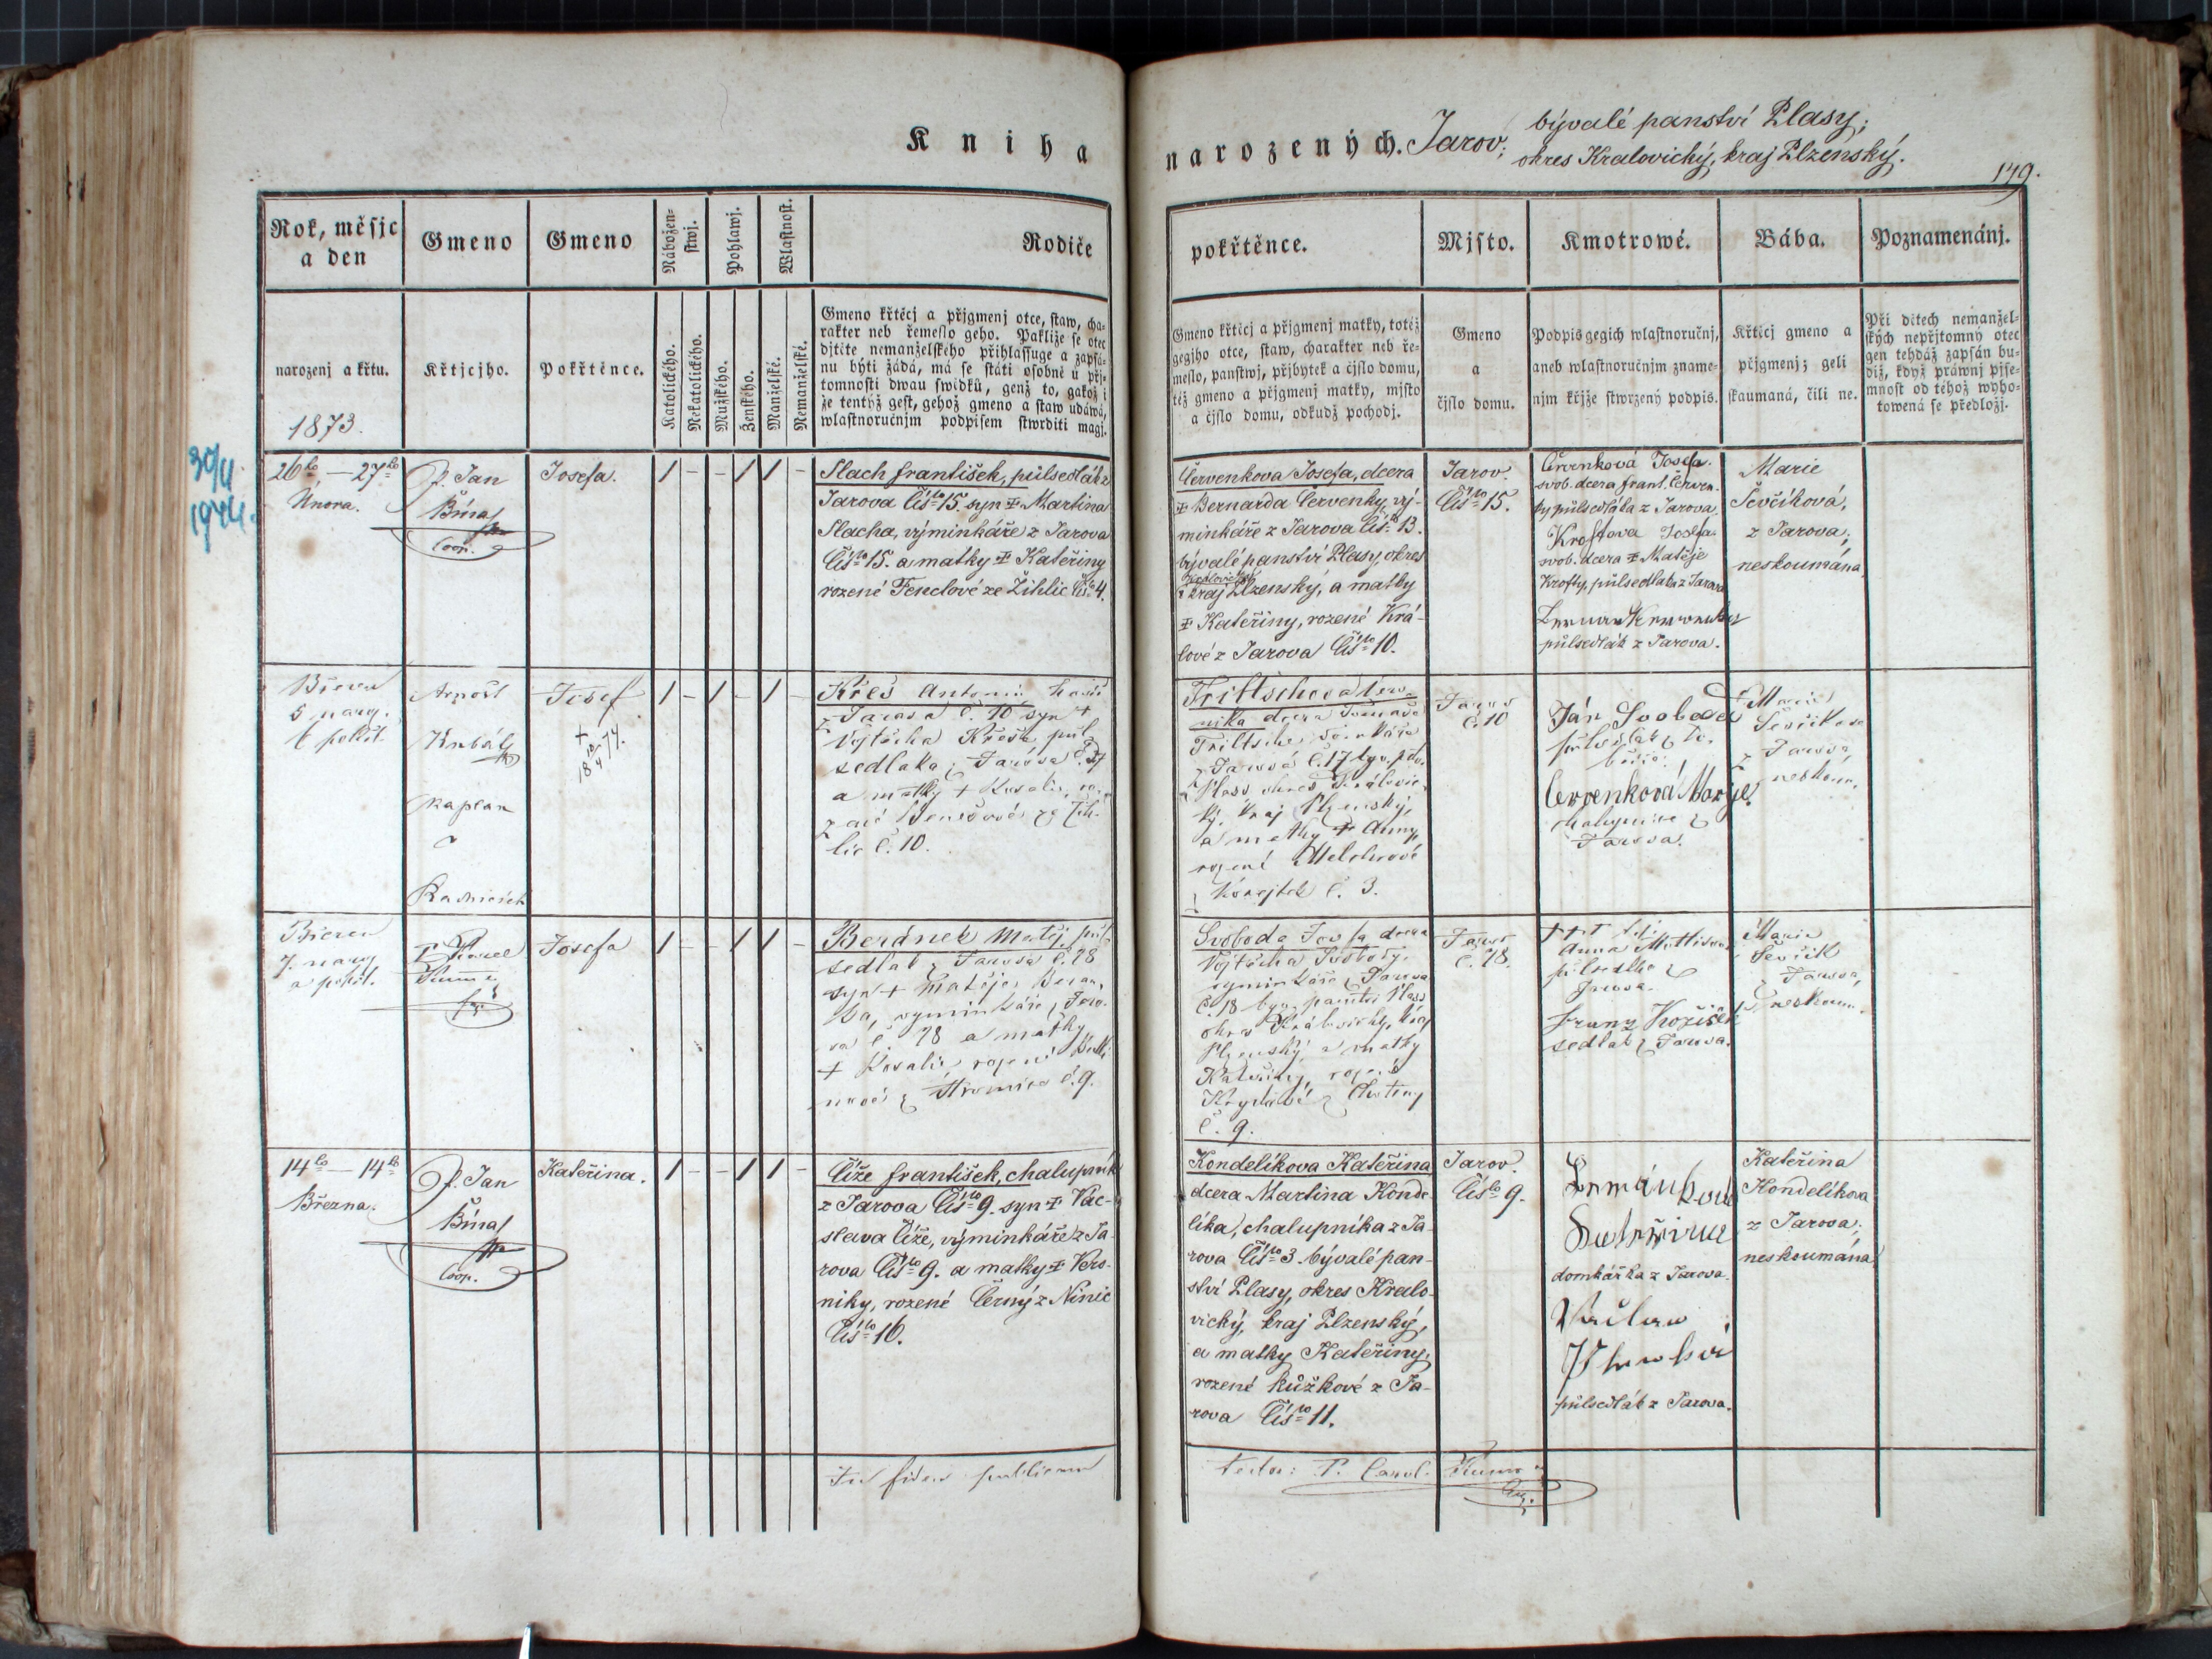 Kniha
narozených. Jarov; bývalé panství Plasy;
okres Kralovický, kraj Plzenský.
149.
Rok, měsjc
a den
narozenj a křtu.
1873.
Gmeno
Křtjcjho.
Gmeno
Pokřtěnce.
Nábožen-
stwj.
Katolického.
Nekatolického.
Pohlawj.
Mužského.
Ženského.
Wlastnost.
Manželské.
Nemanželské.
Rodiče
Gmeno křtěcj a přjgmenj otce, staw, cha-
rakter neb řemeslo geho. Pakliže se otec
djtěte nemanželského přihlassuge a zapsá-
nu býti žádá, má se státi osobně u přj-
tomnosti dwau swědků, genž to, gakož i
že tentýž gest, gehož gmeno a staw udáwá,
wlastnoručnjm podpisem stwrditi magj.
pokřtěnce.
Gmeno křticj a přjgmenj matky, totéž
gegjho otce, staw, charakter neb ře-
meslo, panstwj, přjbytek a čjslo domu,
též gmeno a přjgmenj matky, mjsto
a čjslo domu, odkudž pochodj.
Mjsto.
Gmeno
a
čjslo domu.
Kmotrowé.
Podpis gegich wlastnoručnj,
aneb wlastnoručnjm zname-
njm křjže stwrzený podpis.
Bába.
Křticj gmeno a
přjgmenj; geli
skaumaná, čili ne.
Poznamenánj.
Při dětech nemanžel-
ských nepřjtomný otec
gen tehdáž zapsán bu-
diž, když práwnj pjse-
mnost od téhož wyho-
towená se předložj.
30/11
1944.
26to — 27ho
Února.
P. Jan
Bína
Coop.
Josefa.
1 - - 1 1 -
Slach František, půlsedlák z
Jarova Čís. 15. syn + Martina
Slacha, výminkáře z Jarova
Čís. 15. a matky + Kateřiny
rozené Fenclové ze Žihlic Čís. 4.
Červenkova Josefa, dcera
+ Bernarda Červenky, vý-
minkáře z Jarova Čís. 13.
bývalé panství Plasy, okres
Kralovický
kraj Plzenský, a matky
+ Kateřiny, rozené Krá-
lové z Jarova Čís. 10.
Jarov.
Čís. 15.
Červenková Josefa.
svob. dcera Frant. Červen-
ky půlsedláka z Jarova.
Kroftova Josefa.
svob. dcera + Matěje
Krofty, půlsedláka z Jarova
půlsedlák z Jarova.
Marie
Ševčíková,
z Jarova;
neskoumána
Březen
5 naroz.
6 pokřt.
Arnošt
Kubát
Kaplan
Josef
+ 18 10/4 74.
1 - 1 - 1 -
Křes Antonín
z Jarova č. 10 syn +
Vojtěcha Křesa, půl-
sedlaka z Jarova
a matky + Rosalie, ro-
zené ze Žih-
lic č. 10.
Fritschova Vero-
nika dcera Tomaše
Fritsche
z Jarova č. 17 byv. pan.
Plass okres Královic-
ký, kraj Plzenský,
a matky + Anny,
rozené Melchrové
č. 3.
Jarov
č. 10
Ján Svoboda
půlsedlák
Červenková Marje.
Jarova.
Marie
Ševčíkova
z Jarova,
neskoum.
Březen
7. naroz
a pokřt.
P. Karel
Josefa
1 - - 1 1 -
Beránek Matěj, půl-
sedlák z Jarova č. 28
syn + Matěje Beran-
ka, vyminkáře z Jaro-
va č. 28 a matky
+ Rosalie rozené
z Hromice č. 9.
Svoboda Josefa dcera
Vojtěcha Svobody,
vyminkáře z Jarova
č. 18 byv. panství Plass
okres Královický, kraj
Plzenský, a matky
Kateřiny, rozené
č. 9.
Jarov
č. 28.
+++
Anna
Jarova.
Franz Kožíšek
sedlák z Jarova.
Marie
Ševčík
z Jarova,
neskoum.
14to — 14ho
Března.
P. Jan
Bína
Coop.
Kateřina.
1 - - 1 1 -
Číže František, chalupník
z Jarova Čís. 9. syn + Vác-
slava Číže, výminkáře z Ja-
rova Čís. 9. a matky + Vero-
niky, rozené Černý z Ninic
Čís. 16.
Kondelíkova Kateřina
dcera Martina Konde-
líka, chalupníka z Ja-
rova Čís. 3. bývalé pan-
ství Plasy, okres Kralo-
vický, kraj Plzenský,
a matky Kateřiny,
rozené Kůžkové z Ja-
rova Čís. 11.
Jarov.
Čís. 9.
domkářka z Jarova.
Václaw
půlsedlák z Jarova.
Kateřina
Kondelíkova
z Jarova;
neskoumána
In fidem publicam
testor: P. Carol.